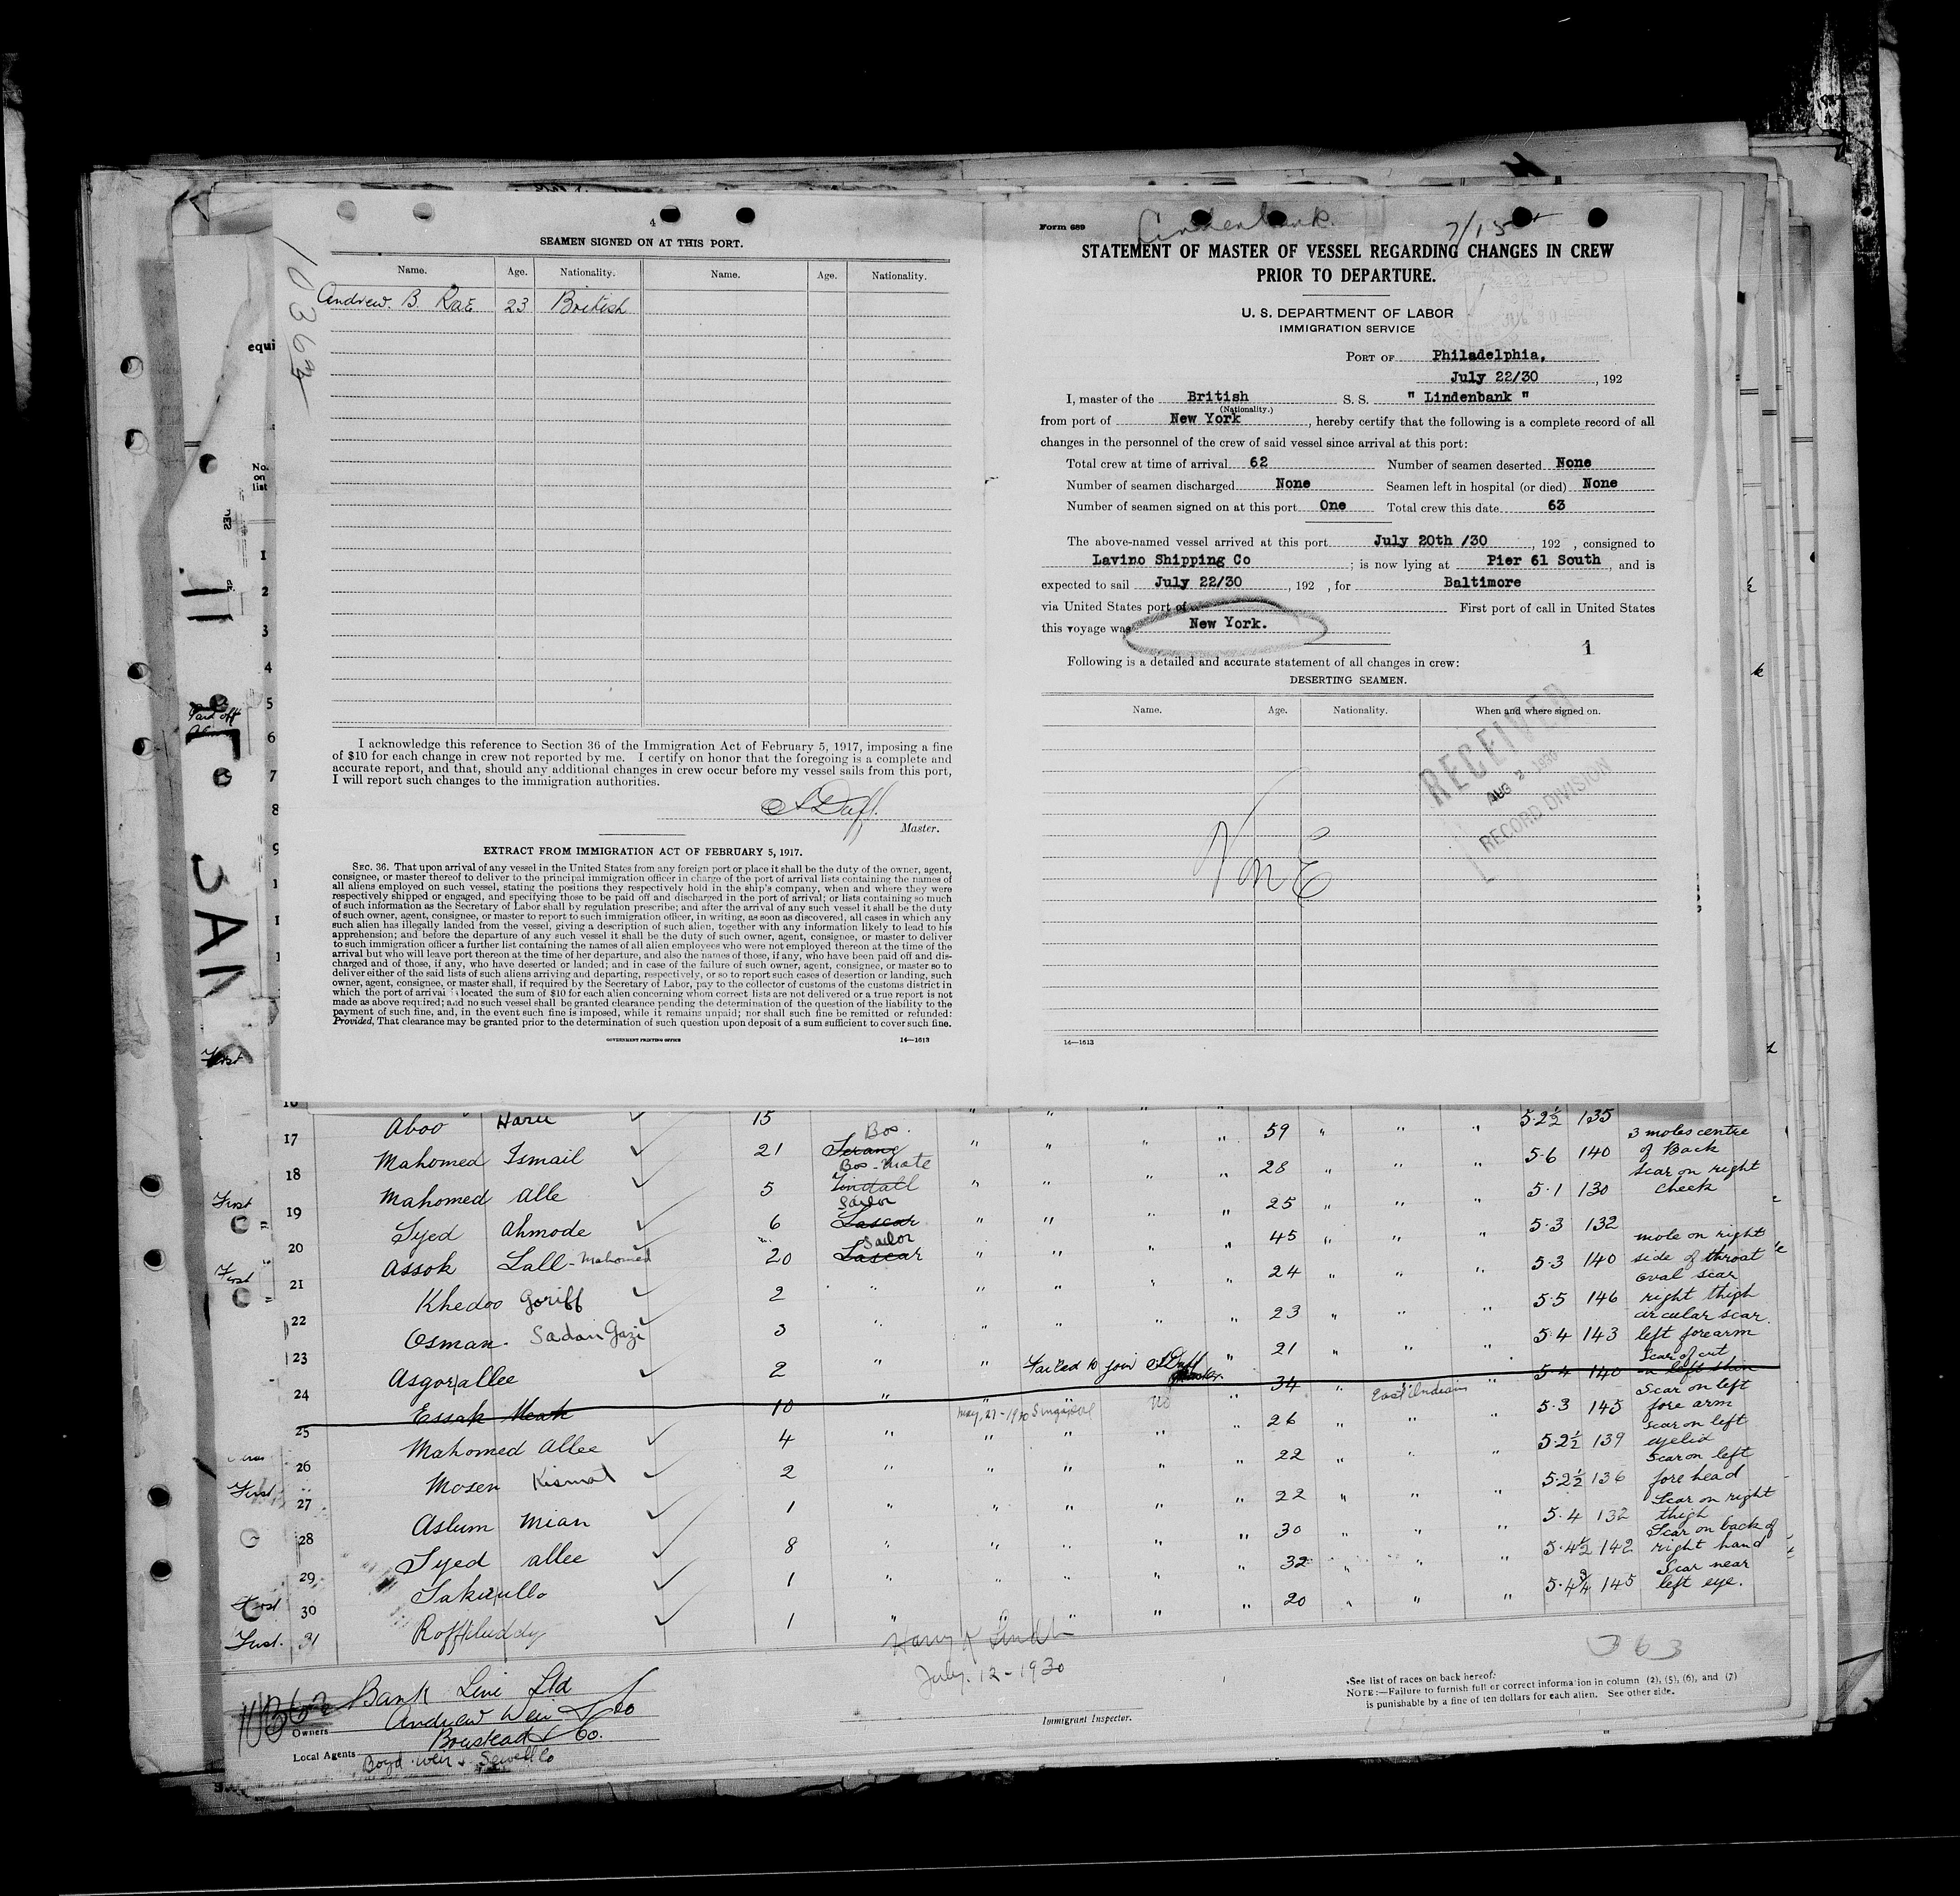 4
SEAMEN SIGNED ON AT THIS PORT.
Name. Age. Nationality. Name. Age. Nationality.
Andrew. B. Rae 23 British
I acknowledge this reference to Section 36 of the Immigration Act of February 5, 1917, imposing a fine
of $10 for each change in crew not reported by me. I certify on honor that the foregoing is a complete and
accurate report, and that, should any additional changes in crew occur before my vessel sails from this port,
I will report such changes to the immigration authorities.
Master.
EXTRACT FROM IMMIGRATION ACT OF FEBRUARY 5, 1917.
SEC. 36. That upon arrival of any vessel in the United States from any foreign port or place it shall be the duty of the owner, agent,
consignee, or master thereof to deliver to the principal immigration officer in charge of the port of arrival lists containing the names of
all aliens employed on such vessel, stating the positions they respectively hold in the ship's company, when and where they were
respectively shipped or engaged, and specifying those to be paid off and discharged in the port of arrival; or lists containing so much
of such information as the Secretary of Labor shall by regulation prescribe; and after the arrival of any such vessel it shall be the duty
of such owner, agent, consignee, or master to report to such immigration officer, in writing, as soon as discovered, all cases in which any
such alien has illegally landed from the vessel, giving a description of such alien, together with any information likely to lead to his
apprehension; and before the departure of any such vessel it shall be the duty of such owner, agent, consignee, or master to deliver
to such immigration officer a further list containing the names of all alien employees who were not employed thereon at the time of the
arrival but who will leave port thereon at the time of her departure, and also the names of those, if any, who have been paid off and dis-
charged and of those, if any, who have deserted or landed; and in case of the failure of such owner, agent, consignee, or master so to
deliver either of the said lists of such aliens arriving and departing, respectively, or so to report such cases of desertion or landing, such
owner, agent, consignee, or master shall, if required by the Secretary of Labor, pay to the collector of customs of the customs district in
which the port of arrival is located the sum of $10 for each alien concerning whom correct lists are not delivered or a true report is not
made as above required; and no such vessel shall be granted clearance pending the determination of the question of the liability to the
payment of such fine, and, in the event such fine is imposed, while it remains unpaid; nor shall such fine be remitted or refunded:
Provided, That clearance may be granted prior to the determination of such question upon deposit of a sum sufficient to cover such fine.
GOVERNMENT PRINTING OFFICE 14—1613
Form 689
7/15
STATEMENT OF MASTER OF VESSEL REGARDING CHANGES IN CREW
PRIOR TO DEPARTURE.
U. S. DEPARTMENT OF LABOR
IMMIGRATION SERVICE
PORT OF Philadelphia,
July 22/30, 192
I, master of the British S. S. " Lindenbank "
(Nationality.)
from port of New York, hereby certify that the following is a complete record of all
changes in the personnel of the crew of said vessel since arrival at this port:
Total crew at time of arrival 62 Number of seamen deserted None
Number of seamen discharged None Seamen left in hospital (or died) None
Number of seamen signed on at this port One Total crew this date 63
The above-named vessel arrived at this port July 20th /30, 192 , consigned to
Lavino Shipping Co; is now lying at Pier 61 South, and is
expected to sail July 22/30, 192 , for Baltimore
via United States port of First port of call in United States
this voyage was New York.
1
Following is a detailed and accurate statement of all changes in crew:
DESERTING SEAMEN.
Name. Age. Nationality. When and where signed on.
RECEIVED
AUG 2 1930
RECORD DIVISION
None
14—1613
No.
on
list
1
2
3
4
5
6
7
8
Aboo Haru 15 5·2½ 135
17 Mahomed Ismail 21 Serang Bos. " " " " 59 " " " 5·6 140 3 moles centre of Back
18 Mahomed Alle 5 Tindall Bos-Mate " " " " 28 " " " 5·1 130 Scar on right cheek
19 Syed Ahmode 6 Lascar Sailor " " " " 25 " " " 5·3 132
20 Assok Lall-Mahomed 20 Lascar Sailor " " " " 45 " " " 5·3 140 mole on right side of throat
21 Khedoo Goriff 2 " " " " " 24 " " " 5·5 146 oval scar right thigh
22 Osman. Sadan Gazi 3 " " " " " 23 " " " 5·4 143 circular scar. left forearm
23 Asgorallee 2 " " " 21 " " " 5·4 140 Scar of cut
Failed to join
24 Essak Meah 10 " May, 27-1930 Singapore No " 34 " East Indian " 5·3 145 Scar on left fore arm
25 Mahomed Allee 4 " " " " " 26 " " " 5·2½ 139 Scar on left eyelid
26 Mosen Kismat 2 " " " " " 22 " " " 5·2½ 136 Scar on left fore head
27 Aslum Mian 1 " " " " " 22 " " " 5·4 132 Scar on right thigh
28 Syed Allee 8 " " " " " 30 " " " 5·4½ 142 Scar on back of right hand
29 1 " " " " " 32 " " " 5·4¾ 145 Scar near left eye.
30 1 " " " " " 20 " " "
31
First
First
First
First
July. 12-1930
Immigrant Inspector.
363
Owners Bank Line Ltd
Andrew Weir & Co
Local Agents Boustead & Co.
Boyd Weir & Sewell Co
See list of races on back hereof.
NOTE:—Failure to furnish full or correct information in column (2), (5), (6), and (7)
is punishable by a fine of ten dollars for each alien. See other side.